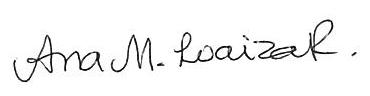 Ana M. Loaiza R.